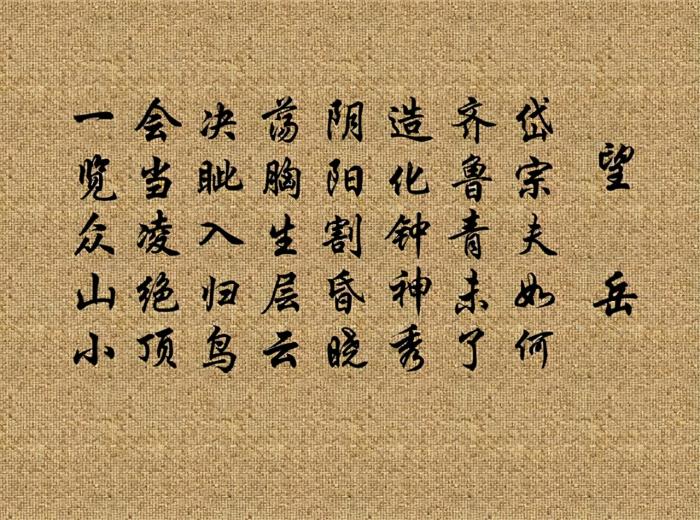 望岳
岱宗夫如何
齐鲁青未了
造化钟神秀
阴阳割昏晓
荡胸生层云
决眦入归鸟
会当凌绝顶
一览众山小